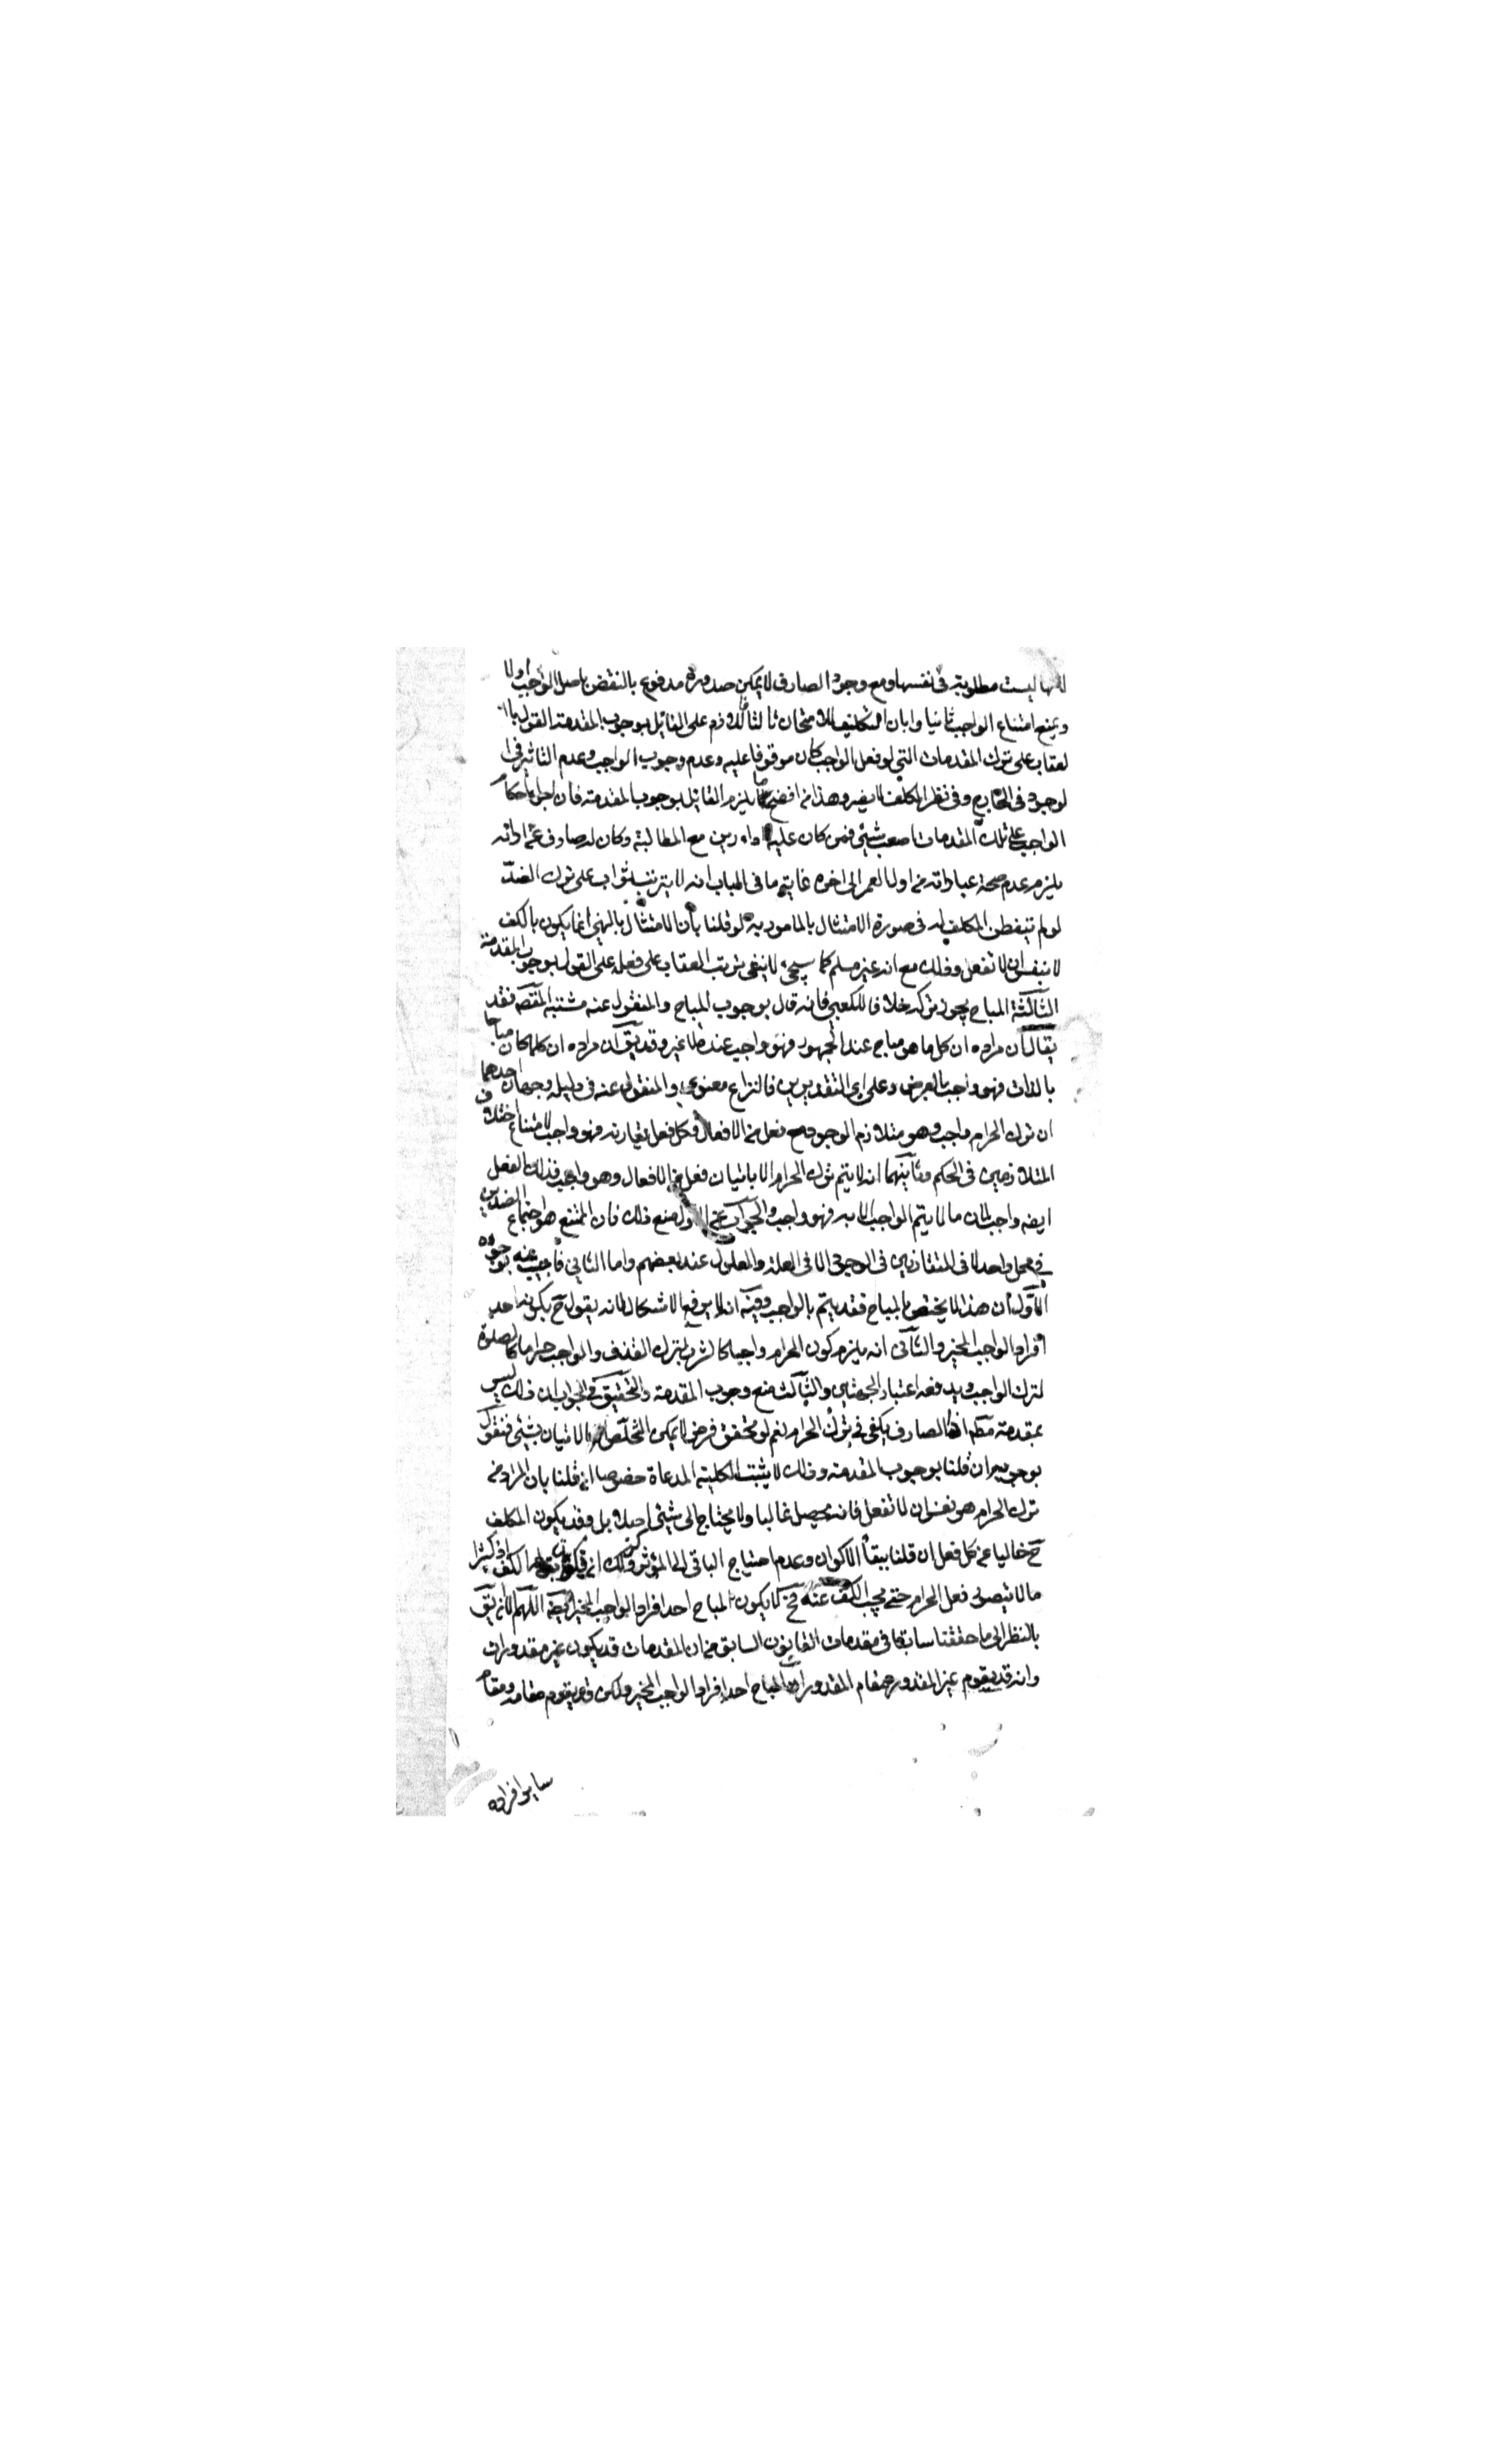 لانها ليست مطلوبة فى نفسها ومع وجود الصارف لا يمكن صدوره مدفوع بالنقض باصل الواجب اولا
ويمنع امتناع الواجب ثانيا وابان التكليف للامتحان ثالثا فاللازم على القائل بوجوب المقدمة القول با
لعقاب على ترك المقدمات التى لو فعل الواجب كان موقوفا عليه وعدم وجوب الواجب وعدم التاثير فى ا
لوجود فى الخارج وفى نظر المكلف لا يضر وهذا من افضح ما يلزم القائل بوجوب المقدمة فان اجراء احكام
الواجب على تلك المقدمات اصعب شيئ فمن كان عليه اداء دين مع المطالبة وكان له صارف عن اداته
يلزم عدم صحة عباداته من اول العمر الى اخره غاية ما فى الباب انه لا يترتب ثواب على ترك الضدّ
لو لم يتفطن المكلف له فى صورة الامتثال بالمامور به لو قلنا بان الامتثال بالنهى انما يكون بالكف
لا بنفس ان لا تفعل وذلك مع انه غير مسلم كما سيجئ لا ينفى ترتب العقاب على فعله على القول بوجوب المقدمة
الثالثة المباح يجوز تركه خلافا للكعبى فانه قال بوجوب المباح والمنقول عنه مشتبه المقصد فقد
يقال ان مراده ان كل ما هو مباح عند الجمهور فهو واجب عنده لا غير وقد يق ان مراده ان كلما كان مباحا
بالذات فهو واجب بالعرض وعلى اى التقديرين فالنزاع معنوى والمنقول عنه فى دليله وجهان احدهما
ان ترك الحرام واجب وهو متلازم الوجود مع فعل من الافعال فكل فعل يقارنه فهو واجب لامتناع اختلاف
المتلازمين فى الحكم وثانيهما انه لا يتم ترك الحرام الا باتيان فعل من الافعال وهو واجب فذلك الفعل
ايضه واجب لان ما لا يتم الواجب الا به فهو واجب والجواب عن الاول منع ذلك فان الممتنع هو اجتماع الضدين
فى محل واحد لا فى المتقارنين فى الوجود الا فى العلة والمعلول عند بعضهم واما الثانى فاجيب عنه بوجوه
الاول ان هذا لا يختص بالمباح فقد يتم بالواجب وفيه انه لا يدفع الاشكال لانه يقول ح بكونه احد
افراد الواجب المخير والثانى انه يلزم كون الحرام واجبا كالشرب لترك القذف والواجب حراما كالصلوة
لترك الواجب ويدفعه اعتبار الجهتين والثالث منع وجوب المقدمة والتحقيق فى الجواب ان ذلك ليس
بمقدمة مطم اذ الصارف يكفى فى ترك الحرام نعم لو تحقق فرض لا يمكن التخلص الا بالاتيان بشيئ فنقول
بوجوبه ان قلنا بوجوب المقدمة وذلك لا يثبت الكلية المدعاة خصوصا ان قلنا بان المراد من
ترك الحرام هو نفس ان لا تفعل فانه يحصل غالبا ولا يحتاج الى شيئ اصلا بل وقد يكون المكلف
ح خاليا عن كل فعل ان قلنا ببقاء الاكوان وعدم احتياج الباقى الى المؤثر وكك ان قلنا الكف اذ كثيرا
ما لا يتصور فعل الحرام حتى يجب الكف عنه فح لا يكون المباح احد افراد الواجب المخير ايضه اللهم الا ان يق
بالنظر الى ما حققنا سابقا فى مقدمات القانون السابق من ان المقدمات قد يكون غير مقدورات
وانه قد يقوم غير المقدور مقام المقدور ان المباح احد افراد الواجب المخير ولكن قد يقوم مقامه ومقام
ساير افراده